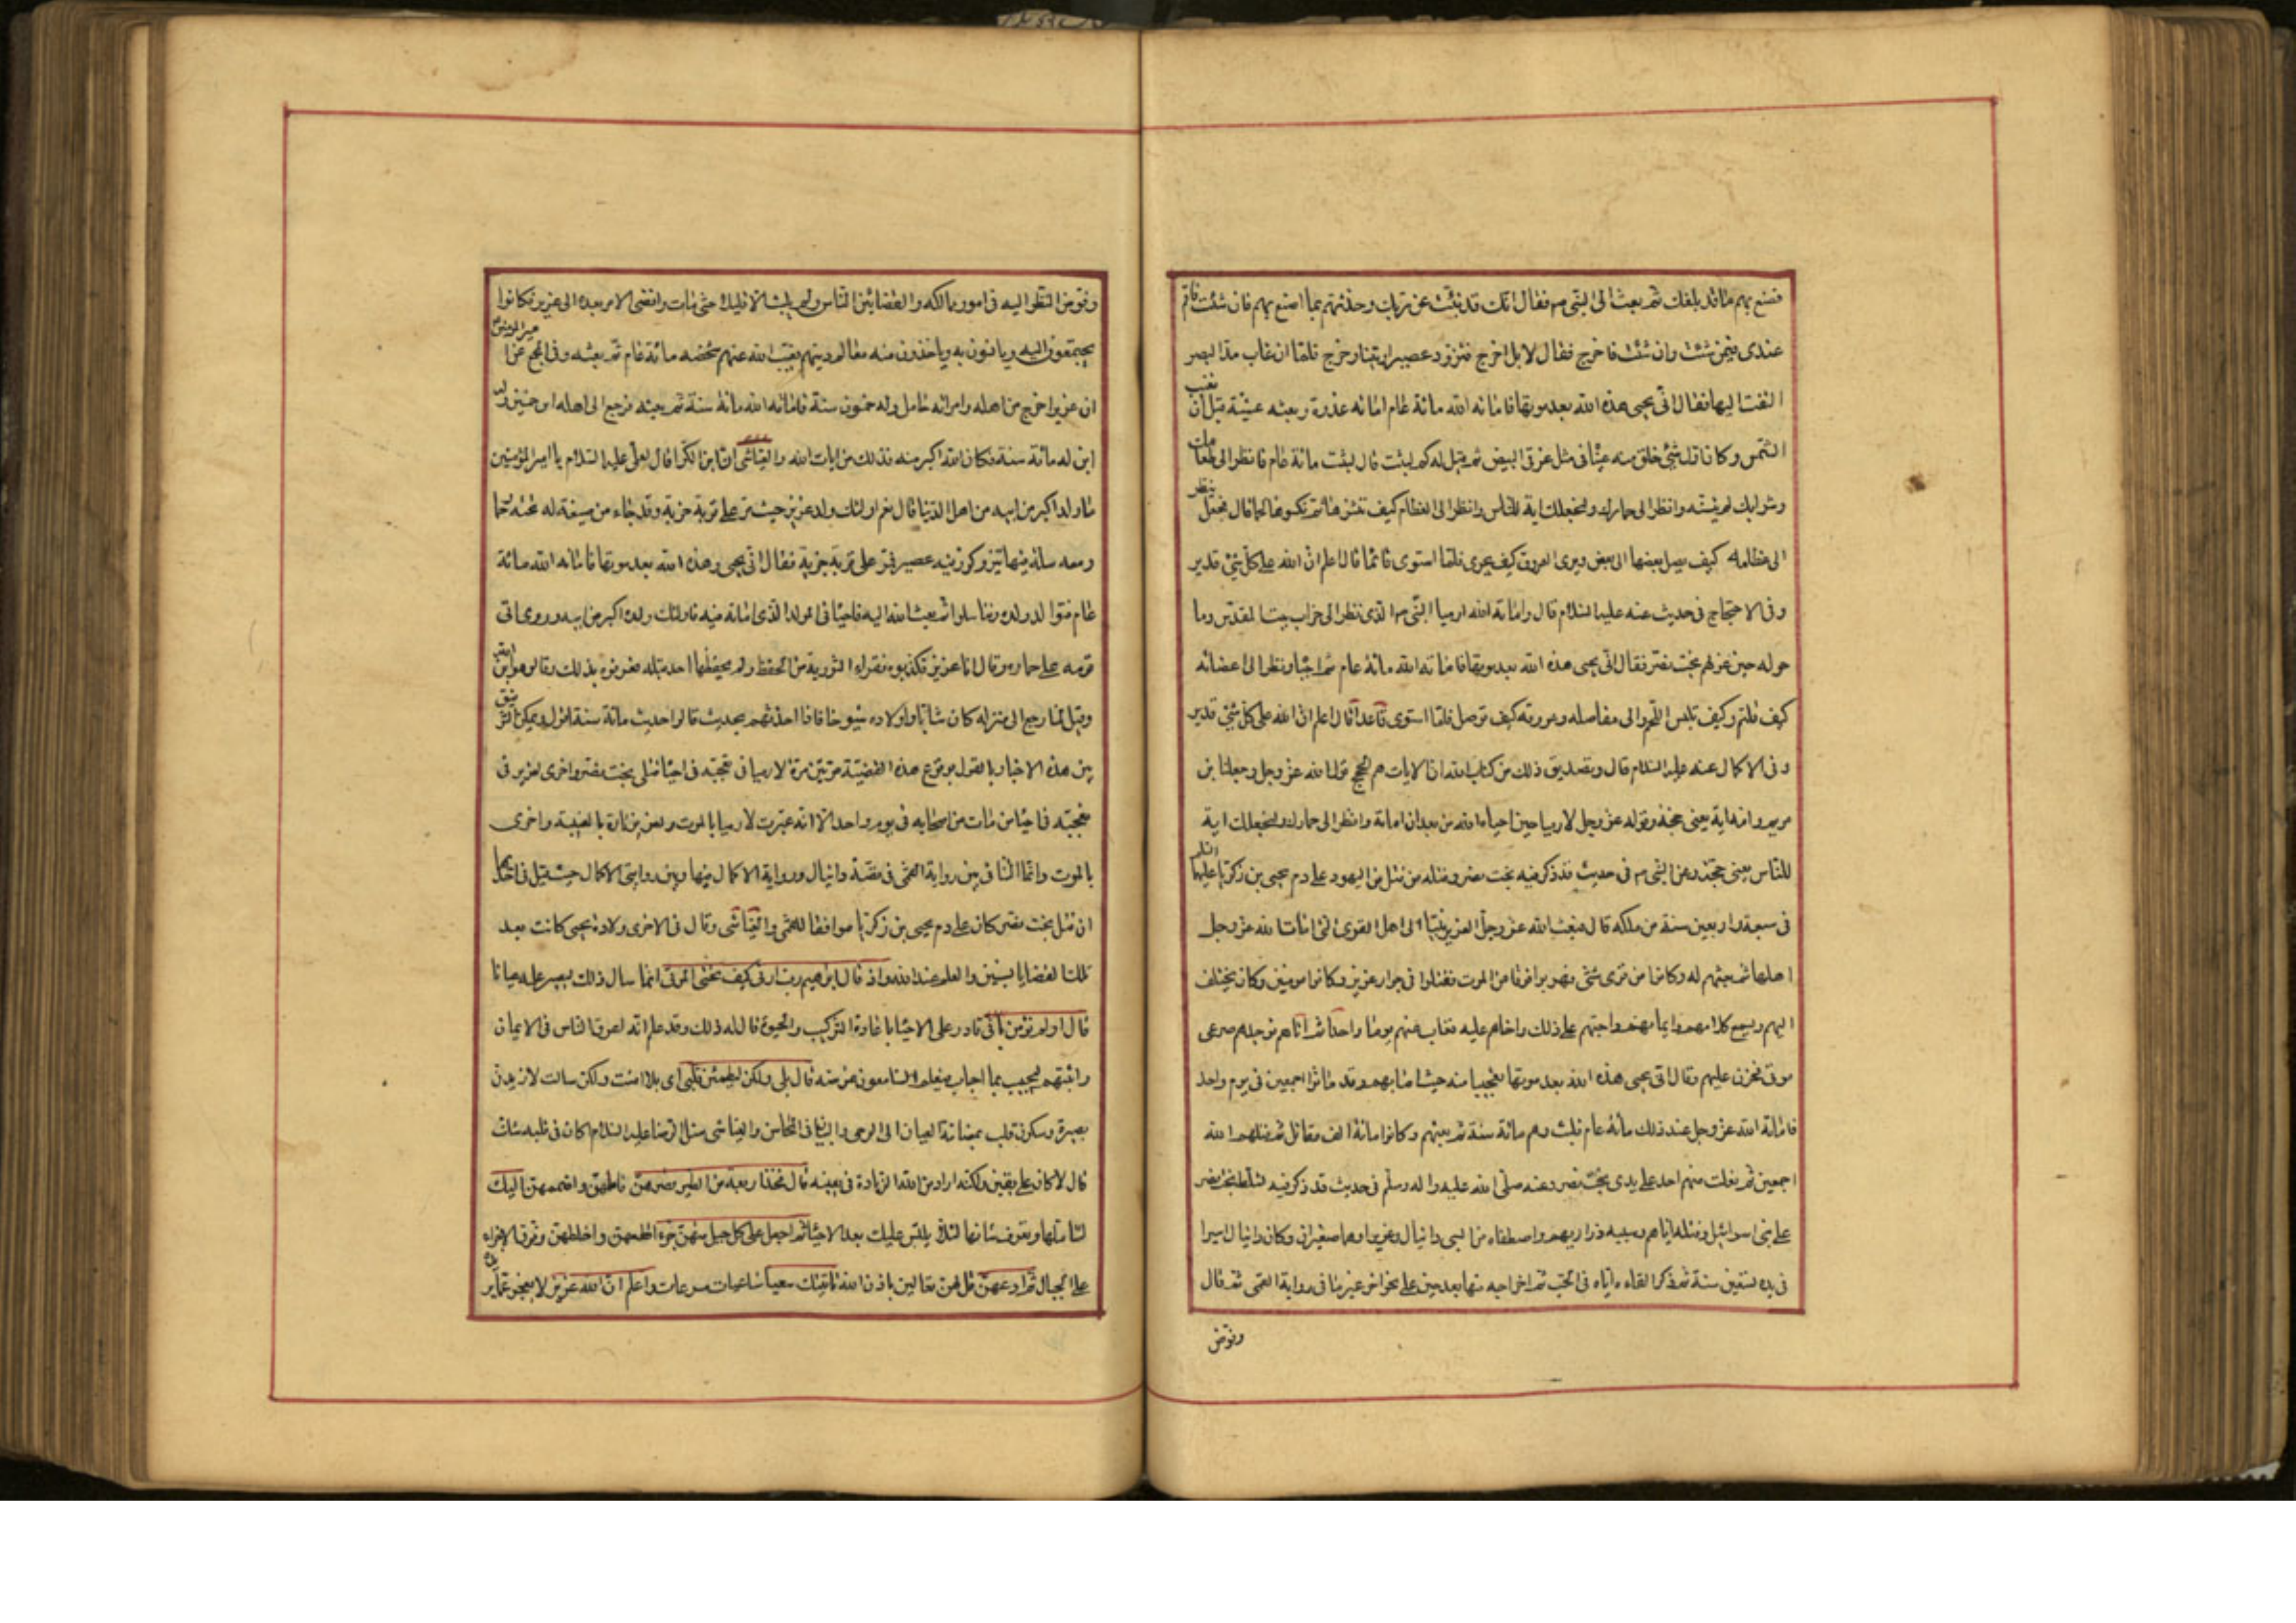 فصنع بهم ما قد بلغك ثم بعث الى النبي م فقال انك قد نبئت عن ربك وخبرتهم بما اصنع بهم فان شئت فاقم
عندى فيمن شئت وان شئت فاخرج فقال لا بل اخرج فتزود عصيرا وتينا وخرج فلما ان غاب مد البصر
التفت اليها فقال انى يحيى هذه الله بعد موتها فاماته الله مائة عام اماته غدوة وبعثه عشية قبل ان تغيب
الشمس وكان اول شئ خلق منه عيناه فى مثل غرقئ البيض ثم قيل له كم لبثت قال لبثت مائة عام فانظر الى طعامك
وشرابك لم يتسنه وانظر الى حمارك ولنجعلك اية للناس وانظر الى العظام كيف ننشزها ثم نكسوها لحما قال فجعل ينظر
الى عظامه كيف يصل بعضها الى بعض ويرى العروق كيف يجرى فلما استوى قائما قال اعلم ان الله على كل شئ قدير
وفى الاحتجاج فى حديث عنه عليه السلام قال وامات الله ارميا النبى م الذى نظر الى خراب بيت المقدس وما
حوله حين غزاهم بخت نصر فقال انى يحيى هذه الله بعد موتها فاماته الله مائة عام ثم احياه ونظر الى اعضائه
كيف تلتئم وكيف تلبس اللحم والى مفاصله وعروقه كيف توصل فلما استوى قاعدا قال اعلم ان الله على كل شئ قدير
وفى الاكمال عنه عليه السلام قال وتصديق ذلك من كتاب الله ان الايات هم الحجج قول الله عز وجل وجعلنا ابن
مريم وامه اية يعنى حجة وقوله عز وجل لارميا حين احياه الله من بعد ان اماته وانظر الى حمارك ولنجعلك اية
للناس يعنى حجة وعن النبى م فى حديث قد ذكر فيه بخت نصر وقتله من قتل من اليهود على دم يحيى بن زكريا عليهما السلم
فى سبعة واربعين سنة من ملكه قال فبعث الله عز وجل العزير نبيا الى اهل القرى التى امات الله عز وجل
اهلها ثم بعثهم له وكانوا من قرى شتى فهربوا فرقا من الموت فنزلوا فى جوار عزير وكانوا مومنين وكان يختلف
اليهم ويسمع كلامهم وايمانهم واحبهم على ذلك واخاهم عليه فغاب عنهم يوما واحدا ثم اتاهم فوجدهم صرعى
موتى فحزن عليهم وقال انى يحيى هذه الله بعد موتها تعجبا منه حيث اصابهم وقد ماتوا اجمعين فى يوم واحد
فاماته الله عز وجل عند ذلك مائة عام فلبث وهم مائة سنة ثم بعثهم وكانوا مائة الف مقاتل ثم قتلهم الله
اجمعين ثم يفلت منهم احد على يدى بخت نصر وعنه صلى الله عليه واله وسلم فى حديث قد ذكر فيه تسلط بخت نصر
على بنى اسرائيل وقتله اياهم وسبيه ذراريهم واصطفاه من السبى دانيال وعزيرا وهما صغيران وكان دانيال اسيرا
فى يده تسعين سنة ثم ذكر القاءه اياه فى الجب ثم اخراجه منها بعد حين على نحو اخر غير ما فى رواية القمى ثم قال
وفوض
وفوض النظر اليه فى امور ممالكه والقضا بين الناس ولم يلبث الا قليلا حتى مات وافضى الامر بعده الى عزير فكانوا
يجتمعون اليه ويانسون به وياخذون منه معالم دينهم فغيب الله عنهم شخصه مائة عام ثم بعثه وفى المجمع عن امير المؤمنين
ان عزيرا خرج من اهله وامراته حامل وله خمسون سنة فاماته الله مائة سنة ثم بعثه فرجع الى اهله ابن خمسين وله
ابن له مائة سنة فكان ابنه اكبر منه فذلك من ايات الله والعياشى ان ابن الكوا قال لعلى عليه السلام يا امير المؤمنين
ما ولد اكبر من ابيه من اهل الدنيا قال نعم اولئك ولد عزير حيث مر على قرية خربة وقد جاء من ضيعة له تحته حمار
ومعه سلة فيها تين وكوز فيه عصير فمر على قرية خربة فقال انى يحيى هذه الله بعد موتها فاماته الله مائة
عام فتوالد ولده وتناسلوا ثم بعث الله اليه فاحياه فى المولد الذى اماته فيه فاولئك ولده اكبر من ابيهم وروى اتى
قومه على حماره وقال انا عزير فكذبوه فقراء التورية من الحفظ ولم يحفظها احد قبله فعرفوه بذلك وقالوا هو ابن الله
وقيل لما رجع الى منزله كان شابا واولاده شيوخا فاذا احدثهم بحديث قالوا حديث مائة سنة اقول ويمكن التوفيق
بين هذه الاخبار بالقول بوقوع هذه القضية مرتين مرة لارميا فى تعجبه فى احيا قتلى بخت نصر واخرى لعزير فى
تعجبه فى احيا من مات من اصحابه فى يوم واحد الا انه عبرت لارميا بالموت ولعزير تارة بالغيبة واخرى
بالموت وانما التنافى بين رواية القمى فى قصة دانيال ورواية الاكمال فيها وبين روايتى الاكمال حيث قيل فى احديهما
ان قتل بخت نصر كان على دم يحيى بن زكريا موافقا للقمى والعياشى وقال فى الاخرى ولادة يحيى كانت بعد
تلك القضايا بسنين والعلم عند الله واذ قال ابرهيم رب ارنى كيف تحيى الموتى انما سال ذلك ليصير علمه عيانا
قال اولم تؤمن بانى قادر على الاحيا باعادة التركيب والحيوة قال له ذلك وقد علم انه اعرق الناس فى الايمان
واثبتهم ليجيب بما اجاب فيعلم السامعون غرضه قال بلى ولكن ليطمئن قلبى اى بلى امنت ولكن سالت لازيد
بصيرة وسكون قلب بمضامة العيان الى الوحى والبيان فى المحاسن والعياشى سئل الرضا عليه السلام اكان فى قلبه شك
قال لا كان على يقين ولكنه اراد من الله الزيادة فى يقينه قال فخذ اربعة من الطير فصرهن فاملهن واضممهن اليك
لتتاملها وتعرف شانها لئلا يلتبس عليك بعد الاحيا ثم اجعل على كل جبل منهن جزء اقطعهن واخلطهن وفرق الاجزاء
على الجبال ثم ادعهن قل لهن تعالين باذن الله ياتينك سعيا ساعيات مسرعات واعلم ان الله عزيز لا يعجز عما يريده